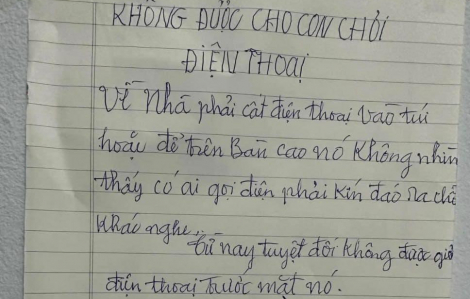 KHÔNG ĐƯỢC CHO CON CHƠI
ĐIỆN THOẠI
Về nhà phải cất điện thoại vào túi
hoặc để trên Bàn cao nó Không nhìn
thấy có ai gọi điện phải Kín đáo ra chỗ
Khác nghe.
từ nay tuyệt đối không được giở
điện thoại trước mặt nó.